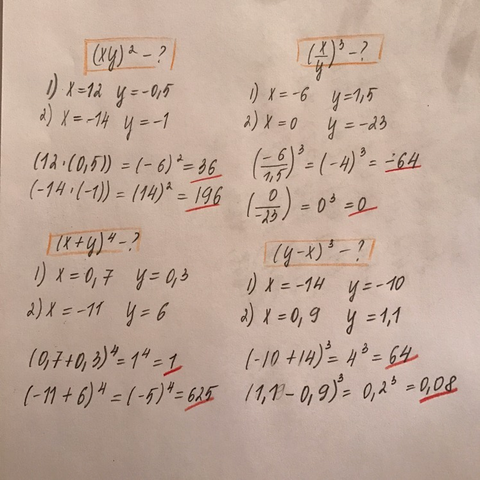 (xy)² - ?
1) x=12 y=-0,5
2) x=-14 y=-1
(12·(0,5)) = (-6)² = 36
(-14·(-1)) = (14)² = 196
(x/y)³ - ?
1) x=-6 y=1,5
2) x=0 y=-23
(-6/1,5)³ = (-4)³ = -64
(0/-23) = 0³ = 0
(x+y)⁴ - ?
1) x=0,7 y=0,3
2) x=-11 y=6
(0,7+0,3)⁴ = 1⁴ = 1
(-11+6)⁴ = (-5)⁴ = 625
(y-x)³ - ?
1) x=-14 y=-10
2) x=0,9 y=1,1
(-10+14)³ = 4³ = 64
(1,1-0,9)³ = 0,2³ = 0,08